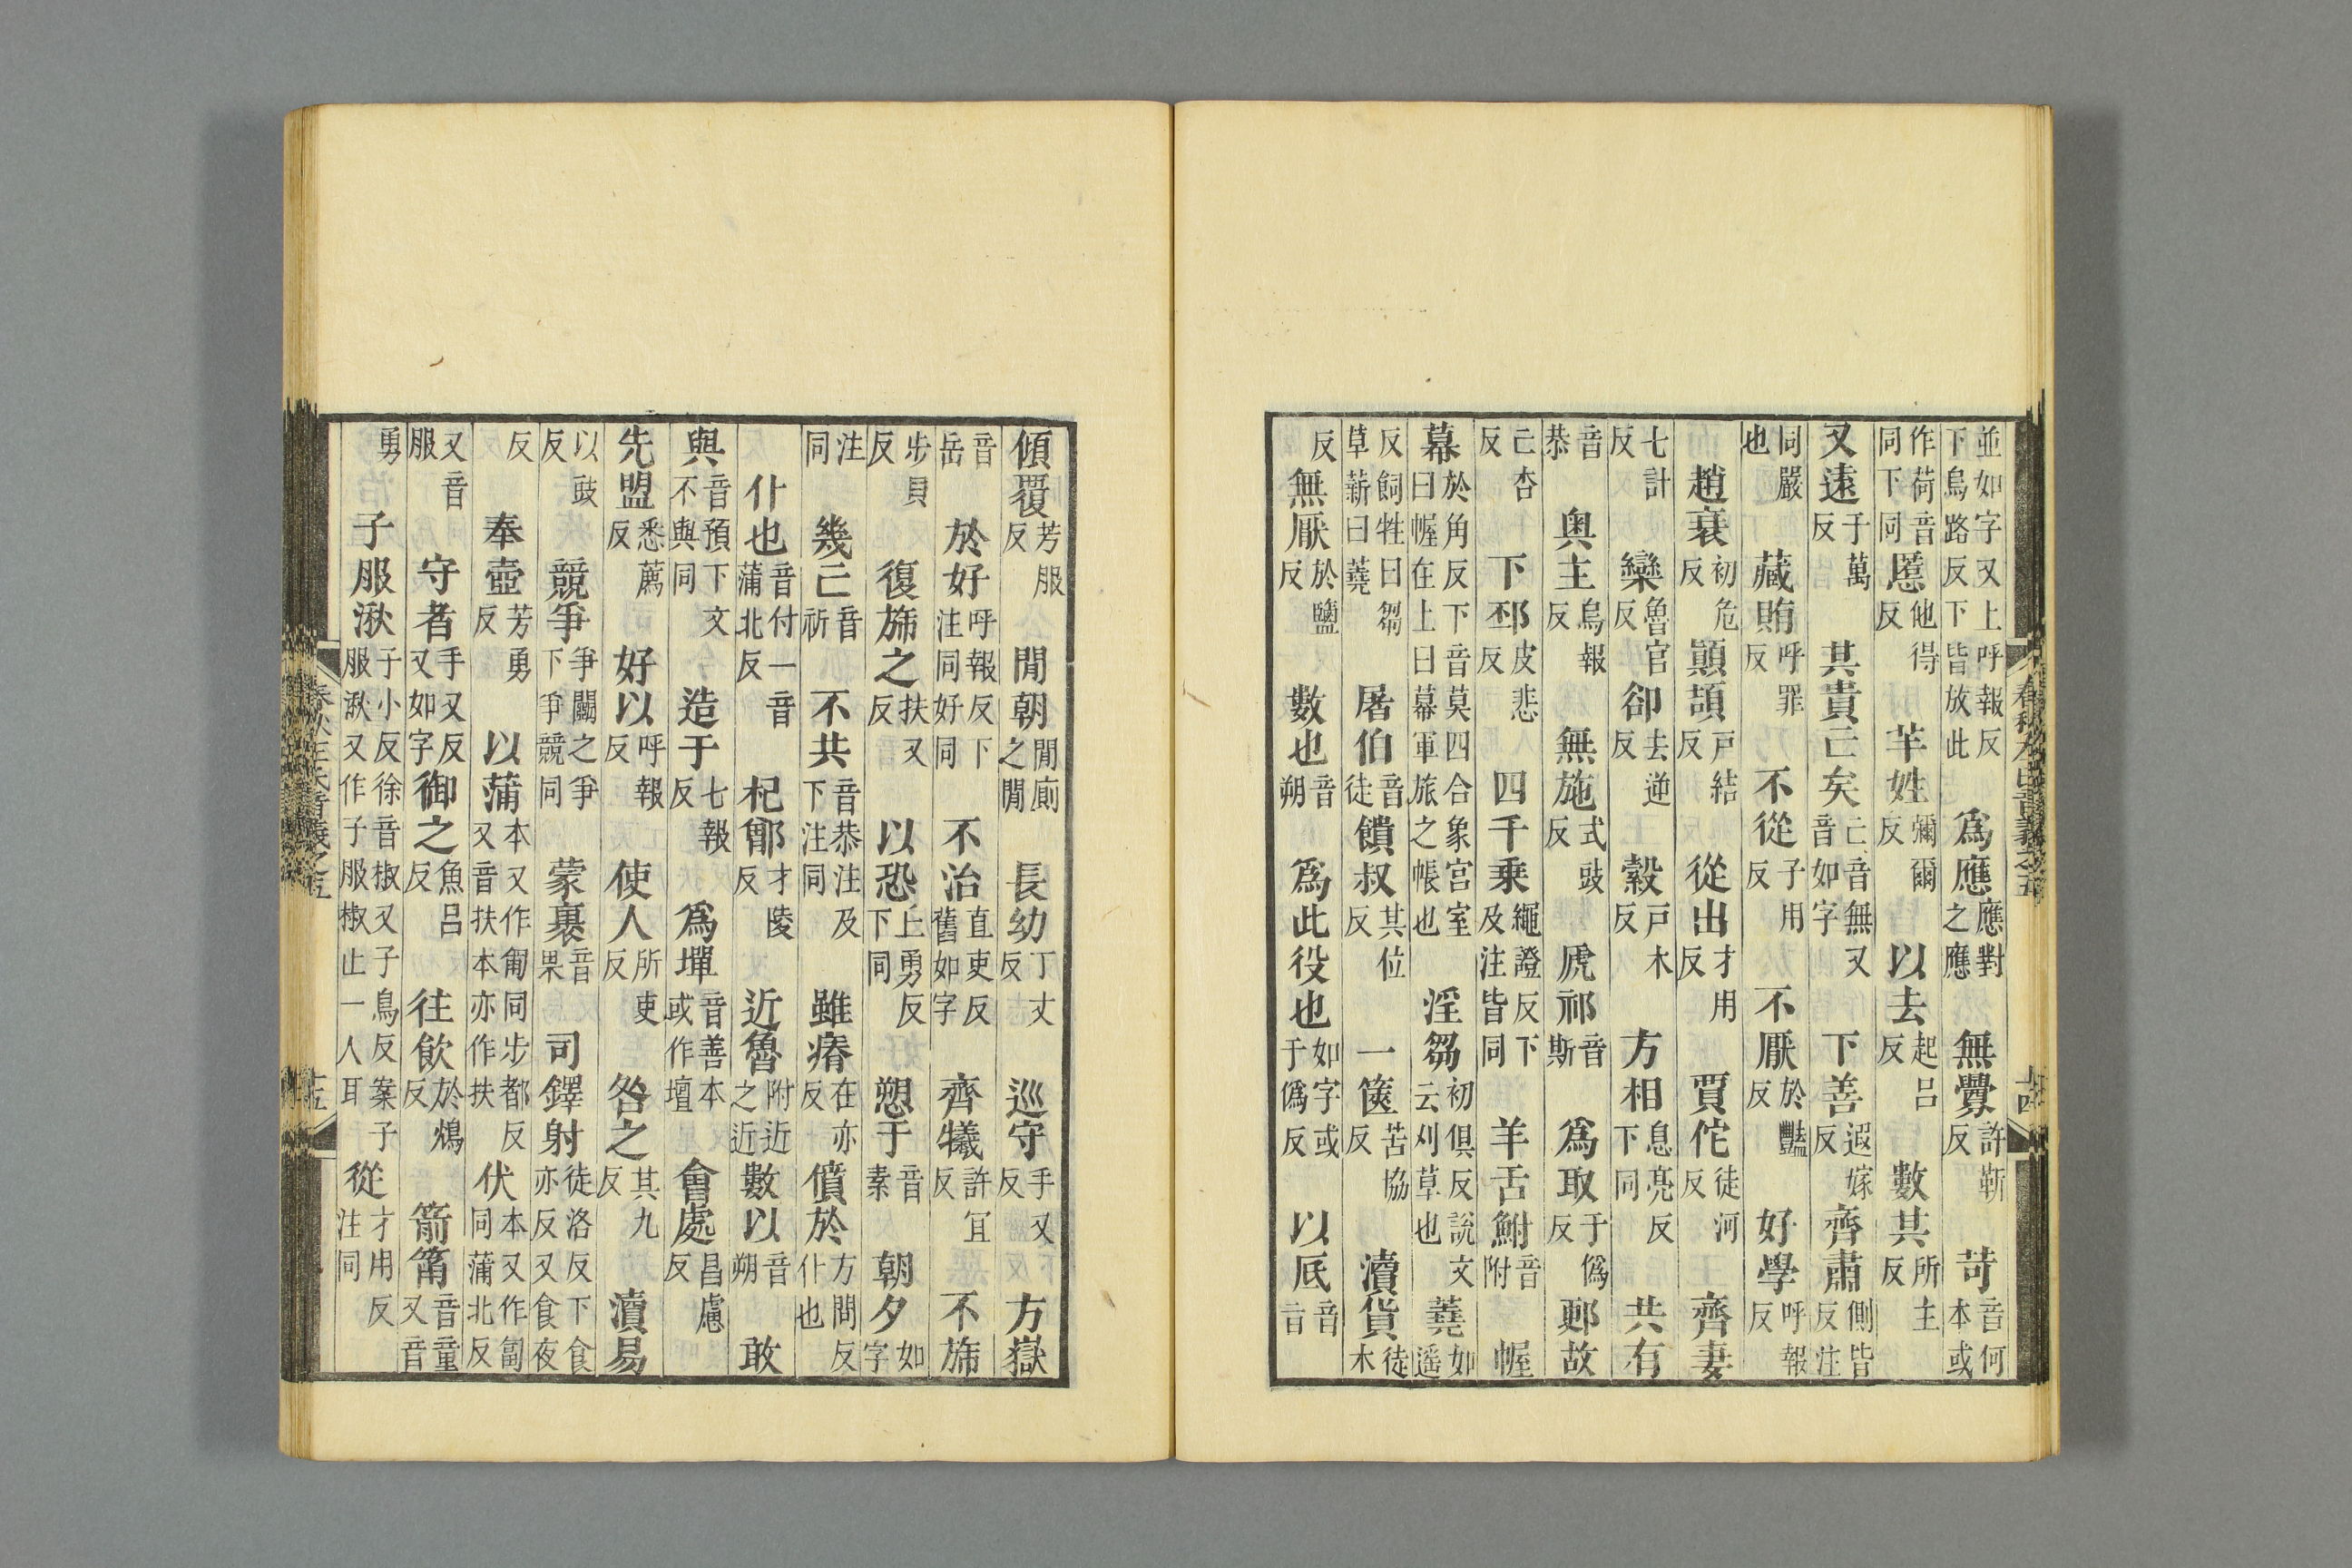 並如字又上呼報反下烏路反下皆放此 爲應應對之應 無釁許靳反 苛音何本或
作荷音同下同 慝他得反 芊姓彌爾反 以去起呂反 數其所主反
又遠于萬反 其貴亡矣亡音無又音如字 下善遐嫁反 齊肅側皆反注
同嚴也 藏賄呼罪反 不從子用反 不厭於豔反 好學呼報反
趙衰初危反 顚頡戸結反 從出才用反 賈佗徒河反 齊妻
七計反 欒魯官反 郤去逆反 縠戸木反 方相息亮反下同 共有
音恭 奥主烏報反 無施式豉反 虒祁音斯 爲取于僞反 郠故
亡杏反 下邳皮悲反 四千乗繩證反下及注皆同 羊舌鮒音附 幄
幕於角反下音莫四合象宮室曰幄在上曰幕軍旅之帳也 淫芻初俱反說文云刈草也 蕘如遥
反飼牲曰芻草薪曰蕘 屠伯音徒 饋叔其位反 一篋苦協反 瀆貨徒木
反 無厭於鹽反 數也音朔 爲此役也如字或于僞反 以厎音旨
傾覆芳服反 閒朝閒廁之閒 長幼丁丈反 巡守手又反 方嶽
音岳 於好呼報反下注同好同 不治直吏反舊如字 齊犧許宜反 不斾
步貝反 復斾之扶又反 以恐丘勇反下同 愬于音素 朝夕如字
注同 幾亡音祈 不共音恭注及下注同 雖瘠在亦反 僨於方問反仆也
仆也音付一音蒲北反 杞鄫才陵反 近魯附近之近 數以音朔 敢
與音預下文不與同 造于七報反 爲墠音善本或作壇 會處昌慮反
先盟悉薦反 好以呼報反 使人所吏反 咎之其九反 瀆易
以豉反 競爭爭鬭之爭下爭競同 蒙裹音果 司鐸射徒洛反下食亦反又食夜
反 奉壺芳勇反 以蒲本又作匍同步都反又音扶本亦作扶 伏本又作匐同蒲北反
又音服 守者手又反又如字 御之魚呂反 往飲於鴆反 箭筩音童又音
勇 子服湫子小反徐音椒又子鳥反案子服湫又作子服椒止一人耳 從才用反注同